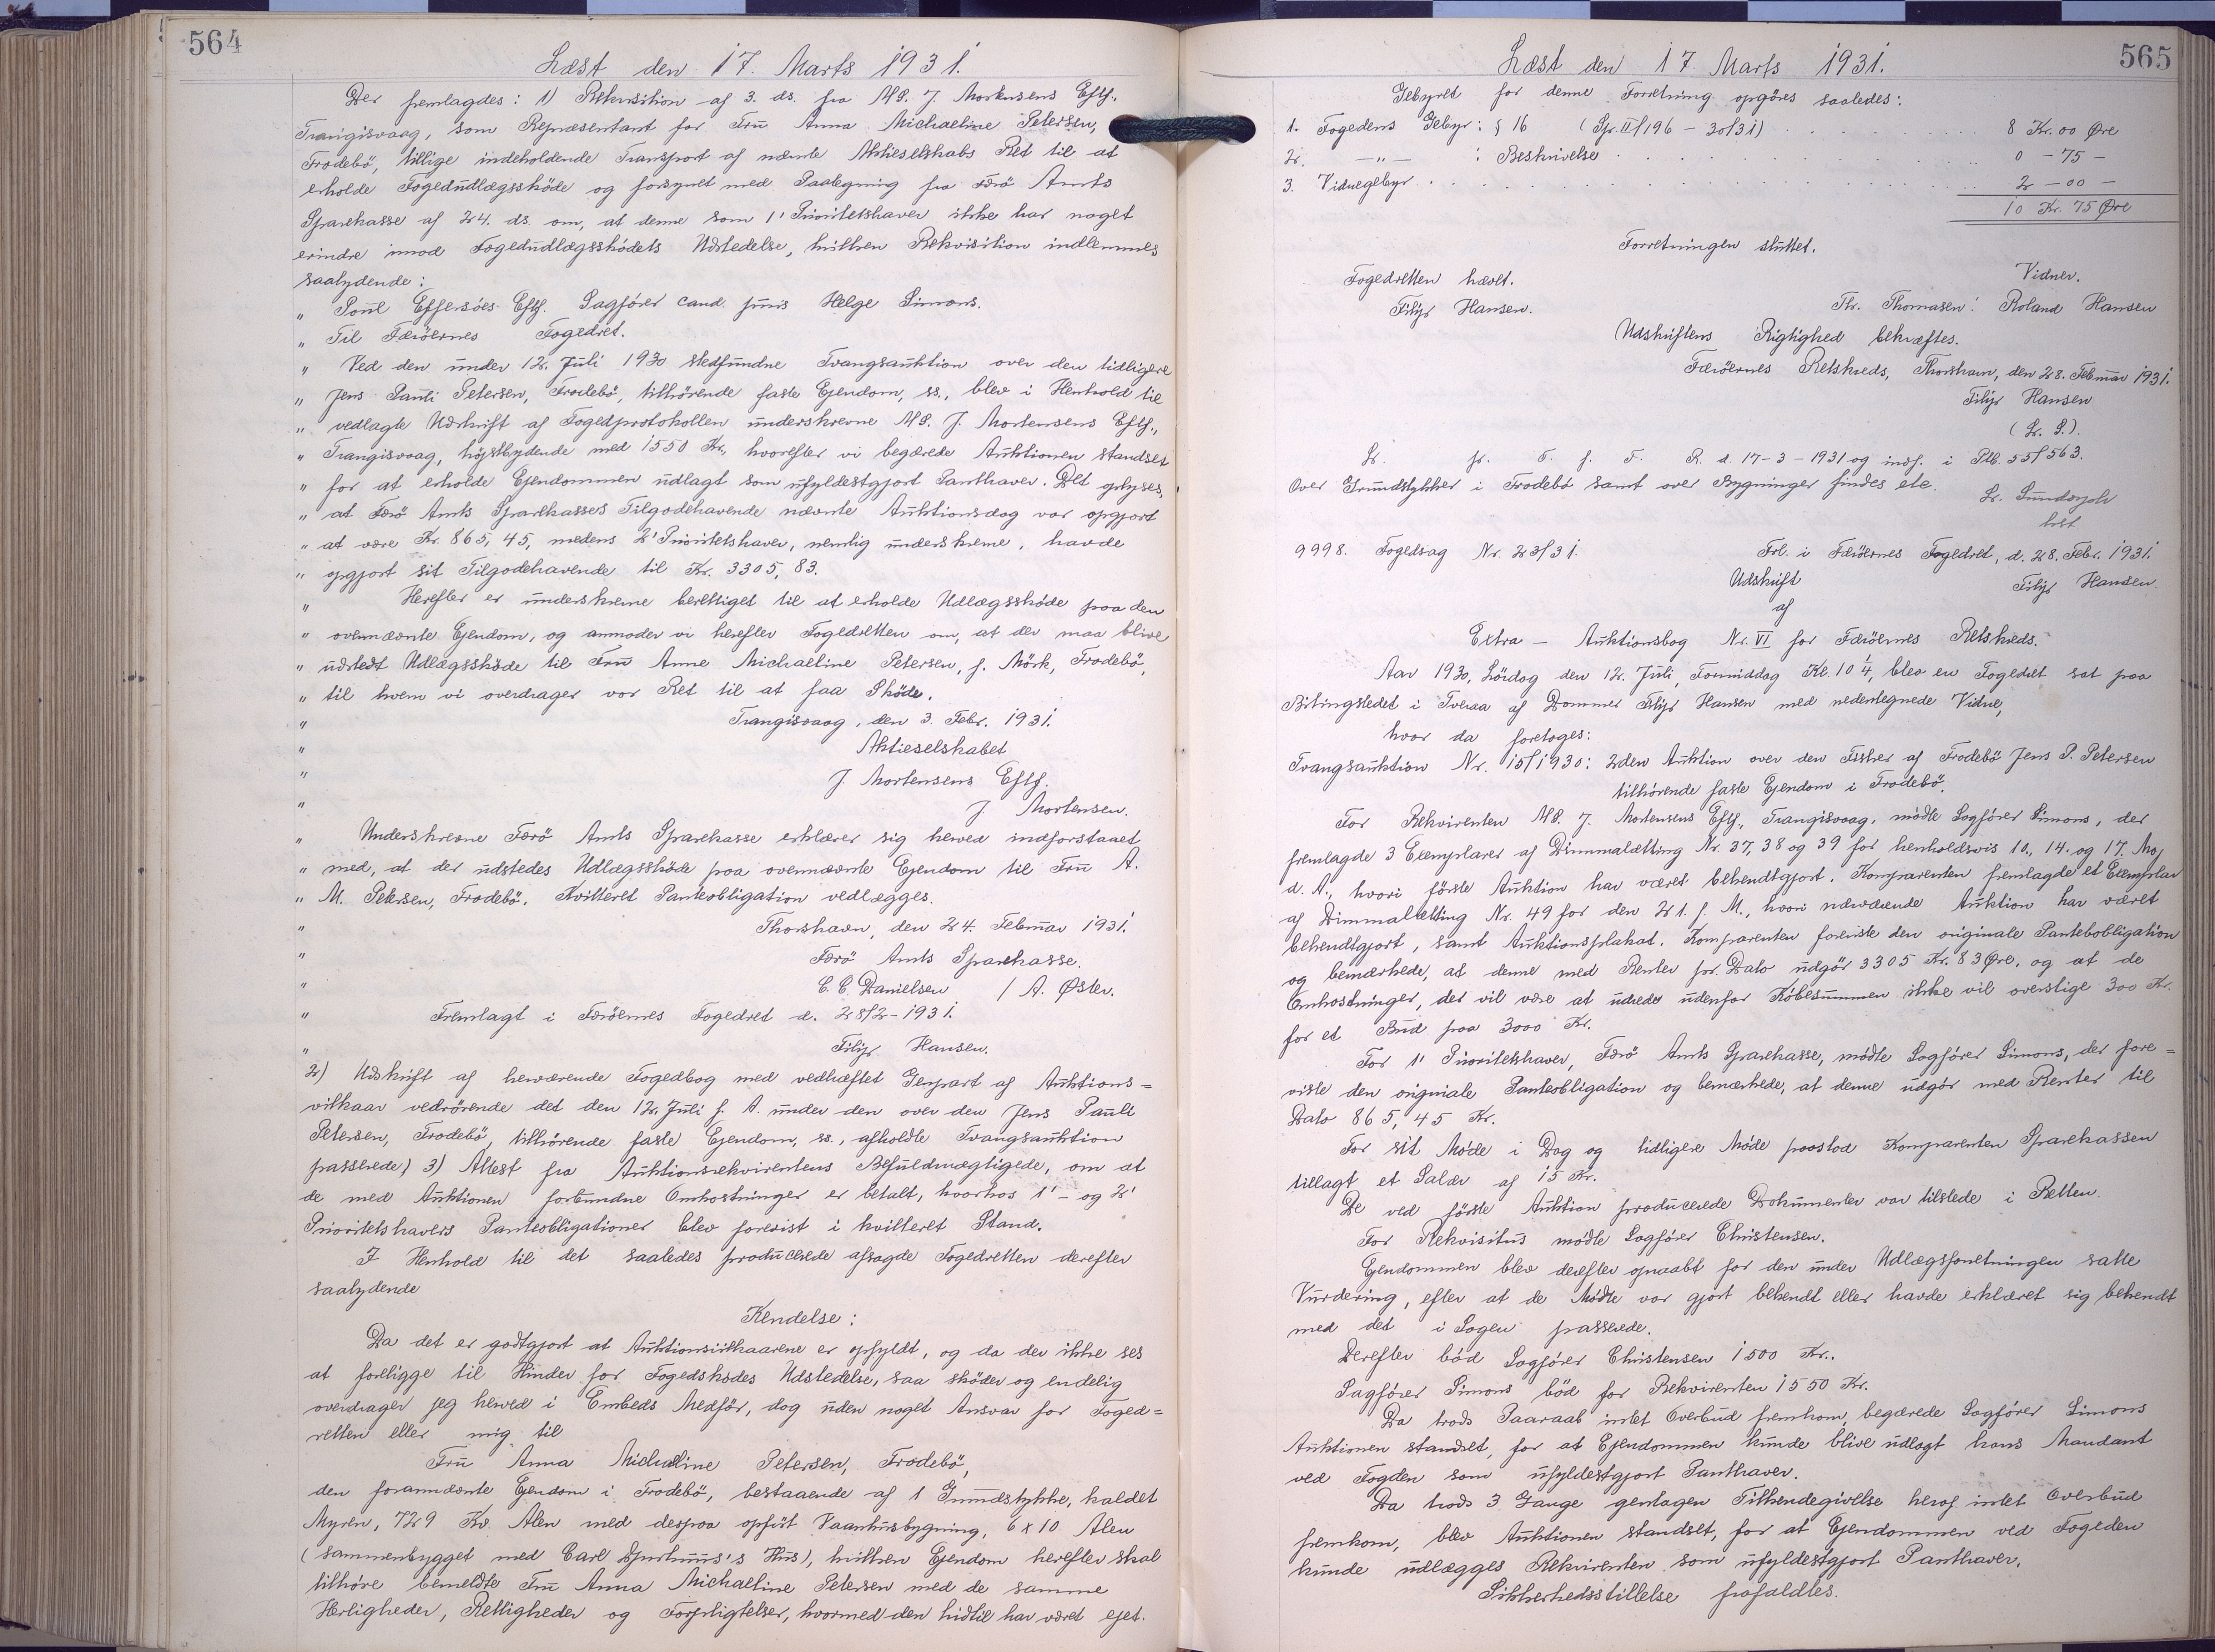 564
Læst den 17. Marts 1931.
Der fremlagdes: 1) Rekvisition af 3. ds. fra A/S. J. Mortensens Eftf.,
Trangisvaag, som Repræsentant for Fru Anna Michaeline Petersen,
Frodebö, tillige indeholdende Transport af nævnte Aktieselskabs Ret til at
erholde Fogedudlægsskøde og forsynet med Paategning fra Færö Amts
Sparekasse af 24. ds. om, at denne som 1' Prioritetshaver ikke har noget
erindre imod Fogedudlægsskødets Udstedelse, hvilken Rekvisition indlemmes
saalydende:
" Poul Effersöes Eftf. Sagfører cand. juris Helge Simons.
" Til Færöernes Fogedret.
" Ved den under 12. Juli 1930 stedfundne Tvangsauktion over den tidligere
" Jens Pauli Petersen, Frodebö, tilhørende faste Ejendom, ss., blev i Henhold til
" vedlagte Udskrift af Fogedprotokollen underskrevne A/S. J. Mortensens Eftf.,
" Trangisvaag, højstbydende med 1550 Kr., hvorefter vi begærede Auktionen standset
" for at erholde Ejendommen udlagt som ufyldestgjort Panthaver. Det oplyses,
" at Færö Amts Sparekasses Tilgodehavende nævnte Auktionsdag var opgjort
" at være Kr. 865,45, medens 2' Prioritetshaver, nemlig underskrevne, havde
" opgjort sit Tilgodehavende til Kr. 3305,83.
" Herefter er underskrevne berettiget til at erholde Udlægsskøde paa den
" ovennævnte Ejendom, og anmoder vi herefter Fogedretten om, at der maa blive
" udstedt Udlægsskøde til Fru Anne Michaeline Petersen, f. Mörk, Frodebö,
" til hvem vi overdrager vor Ret til at faa Skøde.
" Trangisvaag, den 3. Febr. 1931.
" Aktieselskabet
" J Mortensens Eftf.
" J. Mortensen.
" Underskrevne Færö Amts Sparekasse erklærer sig herved indforstaaet
" med, at der udstedes Udlægsskøde paa ovennævnte Ejendom til Fru A.
" M. Petersen, Frodebö. Kvitteret Panteobligation vedlægges.
" Thorshavn, den 24. Februar 1931.
" Færö Amts Sparekasse.
" C. C. Danielsen / A. Øster.
" Fremlagt i Færöernes Fogedret d. 28/2-1931.
" Filip Hansen.
2) Udskrift af herværende Fogedbog med vedhæftet Genpart af Auktions=
vilkaar vedrørende det den 12. Juli f. A. under den over den Jens Pauli
Petersen, Frodebö, tilhørende faste Ejendom, ss., afholdte Tvangsauktion
passerede) 3) Attest fra Auktionsrekvirentens Befuldmægtigede, om at
de med Auktionen forbundne Omkostninger er betalt, hvorhos 1'- og 2'
Prioritetshavers Panteobligationer blev forevist i kvitteret Stand.
I Henhold til det saaledes producerede afsagde Fogedretten derefter
saalydende
Kendelse:
Da det er godtgjort at Auktionsvilkaarene er opfyldt, og da der ikke ses
at foreligge til Hinder for Fogedskødes Udstedelse, saa skøder og endelig
overdrager jeg herved i Embeds Medfør, dog uden noget Ansvar for Foged=
retten eller mig til
Fru Anna Michaeline Petersen, Frodebö,
den forannævnte Ejendom i Frodebö, bestaaende af 1 Grundstykke, kaldet
Myren, 729 Kv. Alen med derpaa opført Vaanhusbygning, 6 x 10 Alen
(sammenbygget med Carl Djurhuus's Hus), hvilken Ejendom herefter skal
tilhøre bemeldte Fru Anna Michaeline Petersen med de samme
Herligheder, Rettigheder og Forpligtelser, hvormed den hidtil har været ejet.
565
Læst den 17. Marts 1931.
Gebyret for denne Forretning opgøres saaledes:
1. Fogedens Gebyr: § 16 (Spr. II/196 - 30/31) 8 Kr. 00 Øre
2. —"— : Beskrivelse 0 - 75 -
3. Vidnegebyr 2 - 00 -
10 Kr. 75 Øre
Forretningen sluttet.
Fogedretten hævet.
Vidner.
Filip Hansen.
Th. Thomasen. Roland Hansen
Udskriftens Rigtighed bekræftes.
Færöernes Retskreds, Thorshavn, den 28. Februar 1931.
Filip Hansen
(L. S.).
L. fr. T. f. F. R. d. 17-3-1931 og indf. i Ptb. 55/563.
Over Grundstykker i Frodebö samt over Bygninger findes ete.
9998. Fogedsag Nr. 23/31.
Frl. i Færöernes Fogedret, d. 28. Febr. 1931.
Udskrift
Filip Hansen.
af
Extra - Auktionsbog Nr. VI for Færöernes Retskreds.
Aar 1930, Lördag den 12. Juli, Formiddag Kl. 10 1/4, blev en Fogedret sat paa
Bitingstedet i Tveraa af Dommer Filip Hansen med nedentegnede Vidne,
hvor da foretoges:
Tvangsauktion Nr. 15/1930: 2den Auktion over den Fisker af Frodebö Jens P. Petersen
tilhørende faste Ejendom i Frodebö.
For Rekvirenten A/S. J. Mortensens Eftf., Trangisvaag, mødte Sagfører Simons, der
fremlagde 3 Exemplarer af Dimmalætting Nr. 37, 38 og 39 for henholdsvis 10., 14. og 17. Maj
d. A., hvori første Auktion har været bekendtgjort. Komparenten fremlagde et Exemplar
af Dimmalætting Nr. 49 for den 21. f. M., hvori nærværende Auktion har været
bekendtgjort, samt Auktionsplakat. Komparenten foreviste den originale Pantebobligation
og bemærkede, at denne med Renter pr. Dato udgør 3305 Kr. 83 Øre, og at de
Omkostninger, der vil være at udrede udenfor Købesummen ikke vil overstige 300 Kr.
for et Bud paa 3000 Kr.
For 1' Prioritetshaver, Færö Amts Sparekasse, mødte Sagfører Simons, der fore=
viste den originale Panteobligation og bemærkede, at denne udgør med Renter til
Dato 865,45 Kr.
For sit Møde i Dag og tidligere Møde paastod Komparenten Sparekassen
tillagt et Salær af 15 Kr.
De ved første Auktion producerede Dokumenter var tilstede i Retten.
For Rekvisitus mødte Sagfører Christensen.
Ejendommen blev derefter opraabt for den under Udlægsforretningen satte
Vurdering, efter at de Mødte var gjort bekendt eller havde erklæret sig bekendt
med det i Sagen passerede.
Derefter bød Sagfører Christensen 1500 Kr..
Sagfører Simons bød for Rekvirenten 1550 Kr.
Da trods Paaraab intet Overbud fremkom, begærede Sagfører Simons
Auktionen standset, for at Ejendommen kunde blive udlagt hans Mandant
ved Fogden som ufyldestgjort Panthaver.
Da trods 3 Gange gentagen Tilkendegivelse heraf intet Overbud
fremkom, blev Auktionen standset, for at Ejendommen ved Fogeden
kunde udlægges Rekvirenten som ufyldestgjort Panthaver.
Sikkerhedsstillelse frafaldtes.